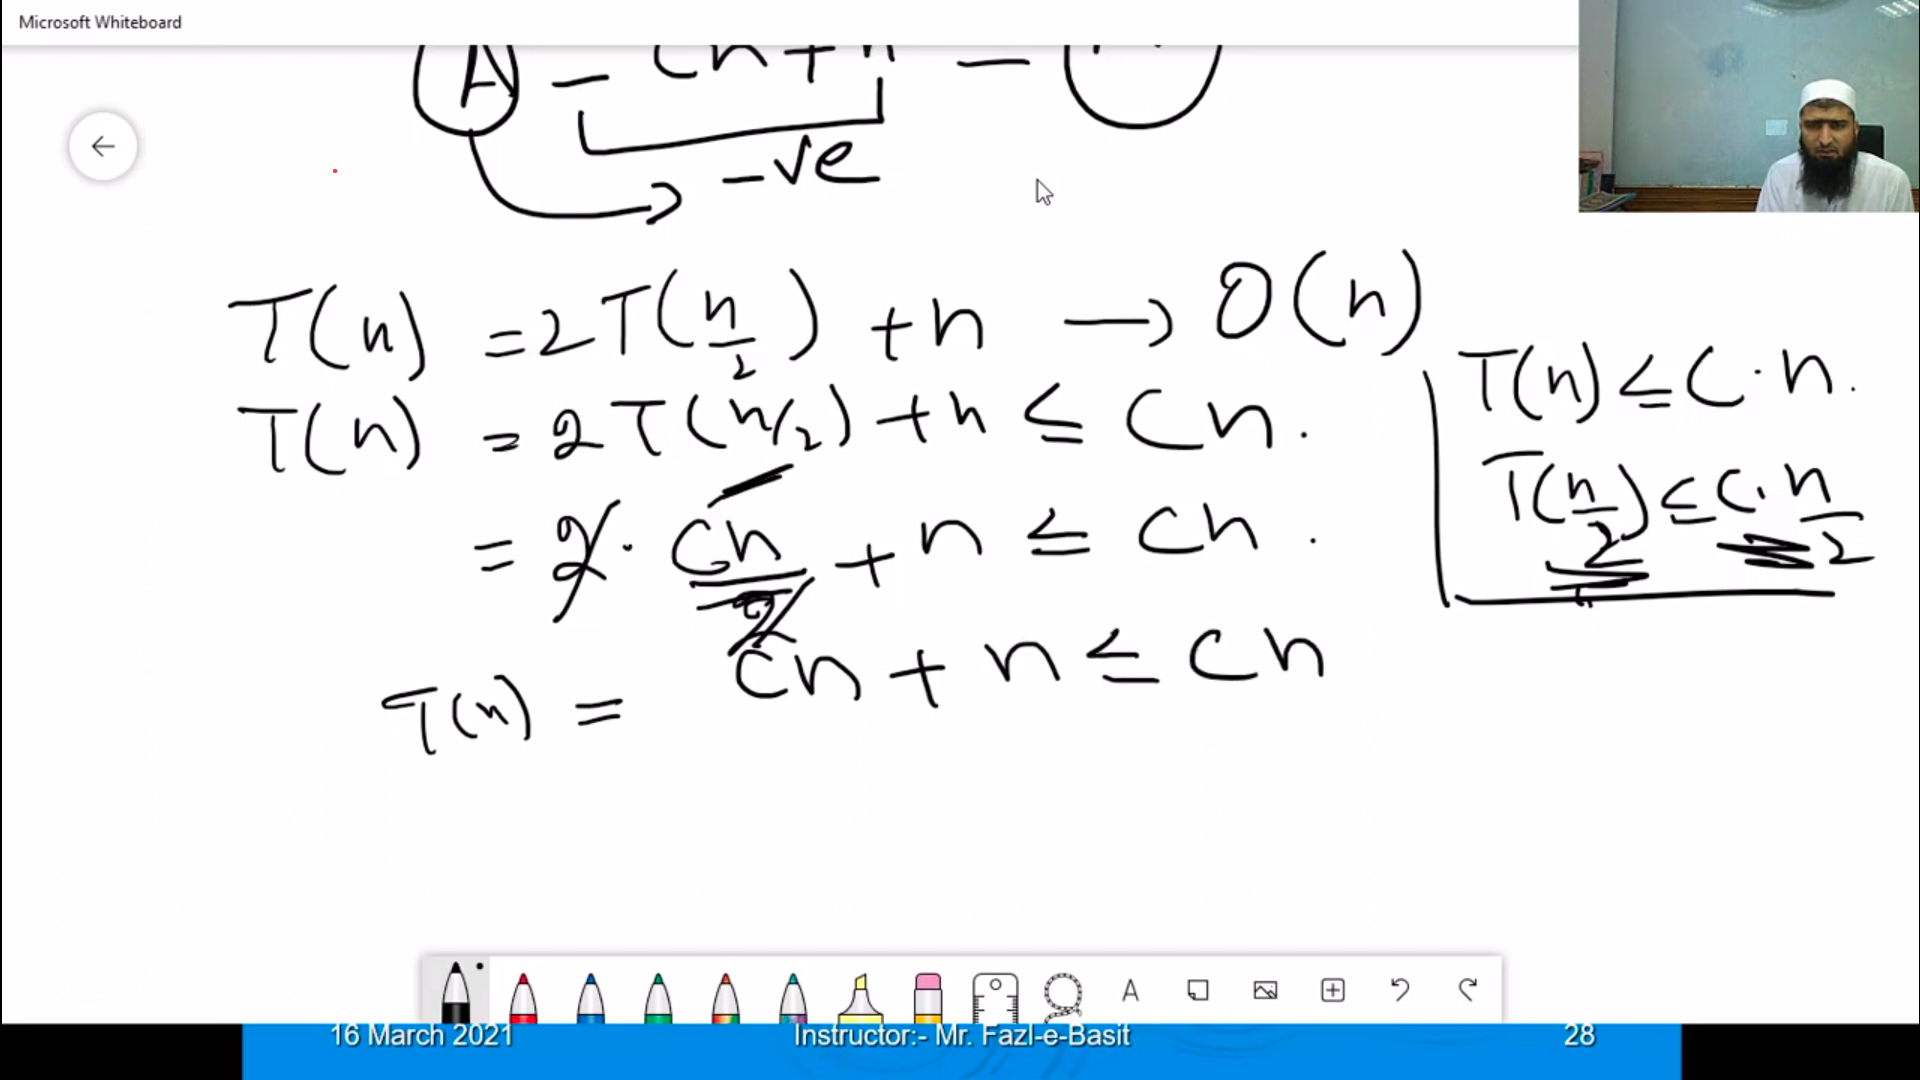 Microsoft Whiteboard
A - cn + n -
-ve
T(n) = 2T(n/2) + n → O(n)
T(n) = 2T(n/2) + n ≤ Cn.
= 2 · Cn/2 + n ≤ Cn.
T(n) = Cn + n ≤ Cn
T(n) ≤ C·n.
T(n/2) ≤ C·n/2
A
16 March 2021
Instructor:- Mr. Fazl-e-Basit
28